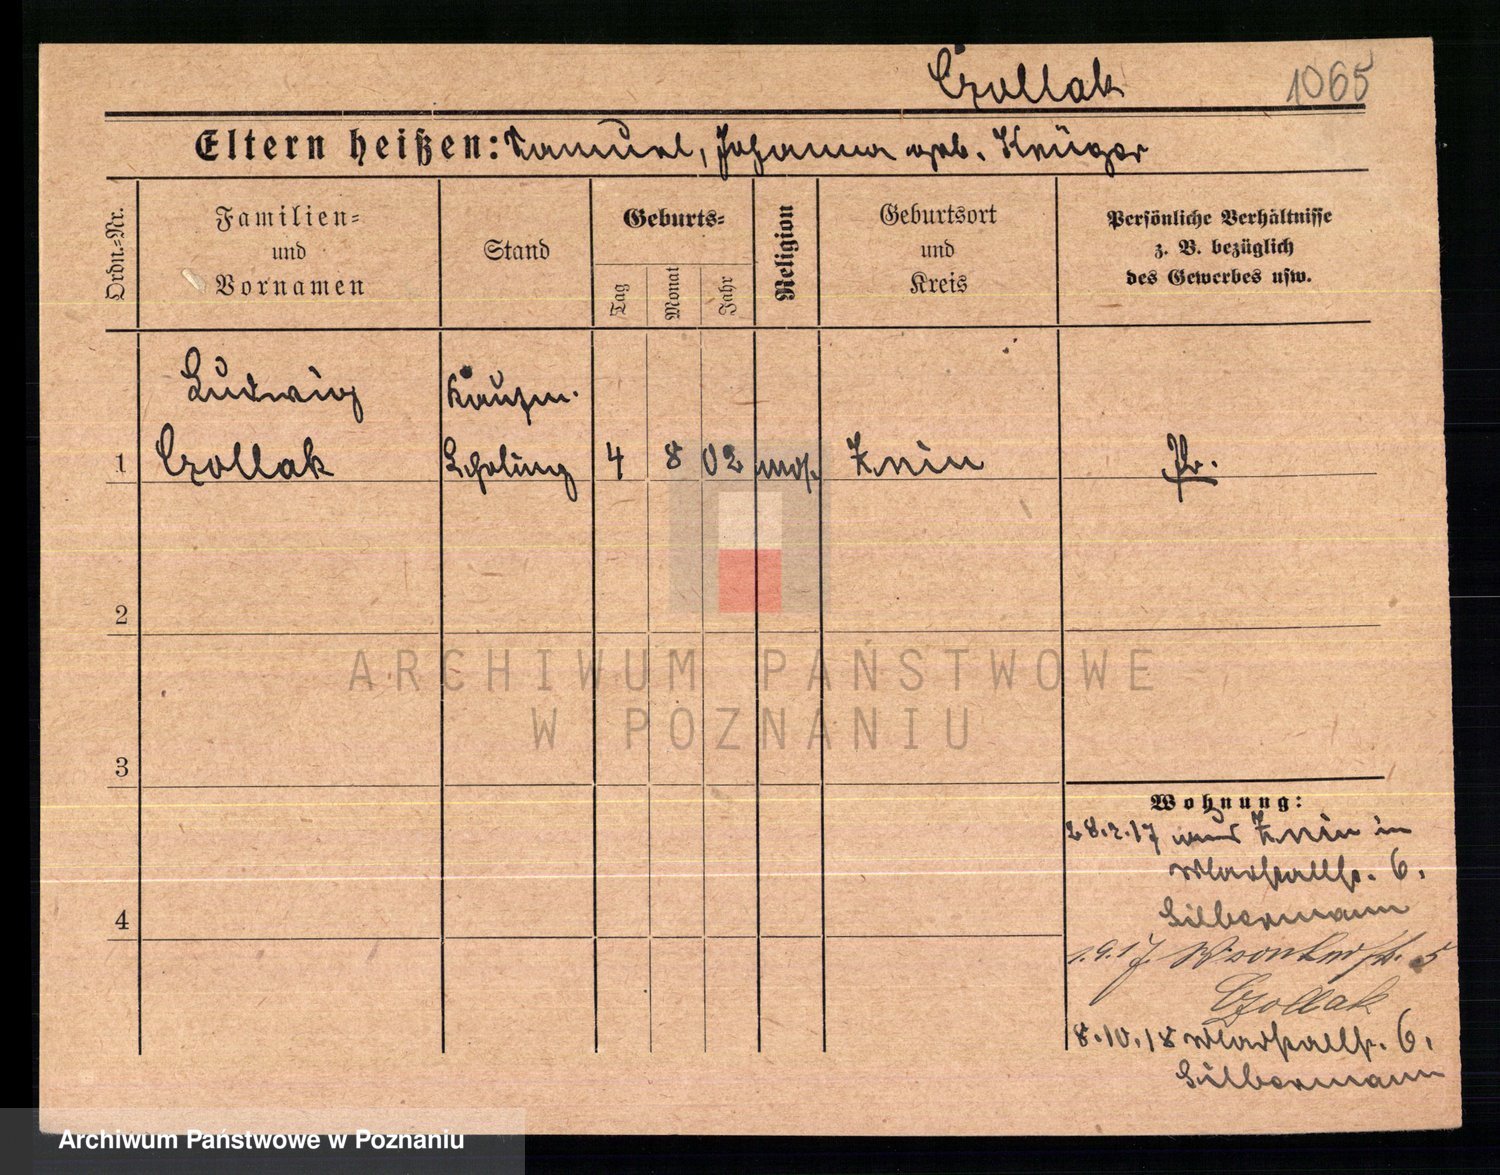 Czollak 1065
Eltern heißen: Samuel, Johanna geb. Krüger
Ordn.-Nr.
Familien-
und
Vornamen
Stand
Geburts-
Tag
Monat
Jahr
Religion
Geburtsort
und
Kreis
Persönliche Verhältnisse
z. B. bezüglich
des Gewerbes usw.
Ludwig Kaufm.
1 Czollak Lehrling 4 8 02 mos. Znin Pr.
2
3
4
Wohnung:
28.2.17 Znin in
Marstallstr. 6.
Silbermann
1.9.17 Wronkerstr. 5
Czollak
8.10.18 Marstallstr. 6.
Silbermann
ARCHIWUM PAŃSTWOWE
W POZNANIU
Archiwum Państwowe w Poznaniu